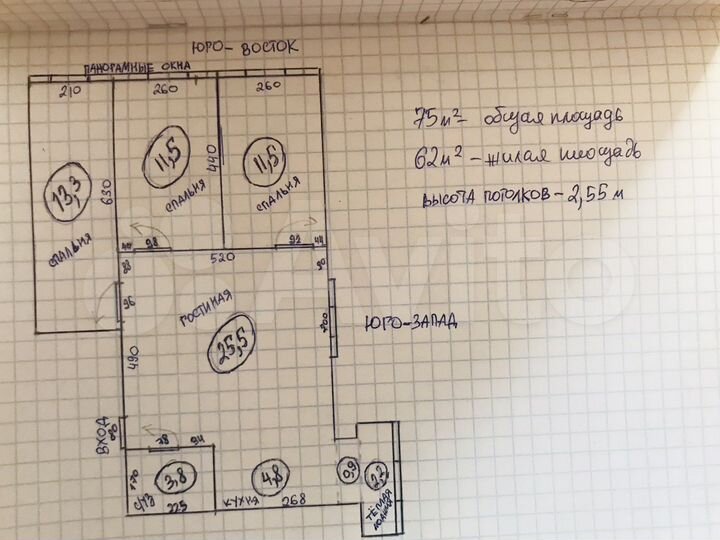 ЮГО-ВОСТОК
ПАНОРАМНЫЕ ОКНА
210
260
260
13,3
СПАЛЬНЯ
630
11,5
СПАЛЬНЯ
440
11,5
СПАЛЬНЯ
75 м² - общая площадь
62 м² - жилая площадь
ВЫСОТА ПОТОЛКОВ - 2,55 м
98
92
44
520
90
96
ГОСТИНАЯ
25,5
200
ЮГО-ЗАПАД
490
ВХОД
78
94
170
С/УЗ
3,8
225
КУХНЯ
4,8
268
0,9
2,2
ТЁПЛАЯ
ЛОДЖИЯ
Avito